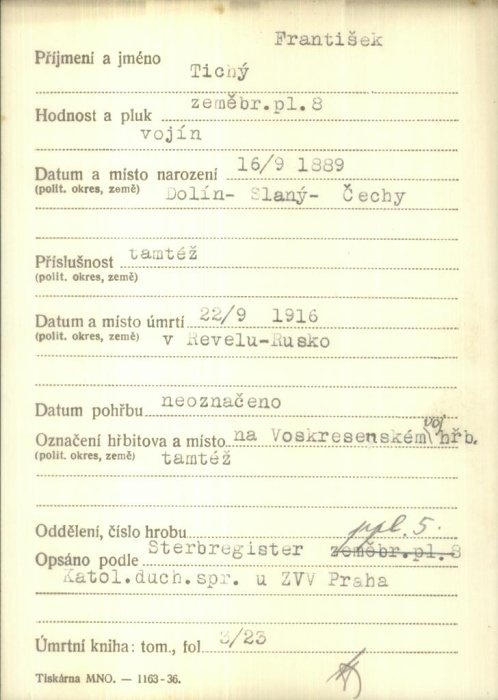 František
Příjmení a jméno Tichý
zeměbr.pl.8
Hodnost a pluk
vojín
Datum a místo narození 16/9 1889
(polit. okres, země) Dolín- Slaný- Čechy
Příslušnost tamtéž
(polit. okres, země)
Datum a místo úmrtí 22/9 1916
(polit. okres, země) v Revelu-Rusko
Datum pohřbu neoznačeno
voj.
Označení hřbitova a místo na Voskresenském hřb.
(polit. okres, země) tamtéž
Oddělení, číslo hrobu ppl. 5.
Opsáno podle Sterbregister zeměbr.pl.8
Katol.duch.spr. u ZVV Praha
Úmrtní kniha: tom., fol. 3/23
Tiskárna MNO. — 1163-36.